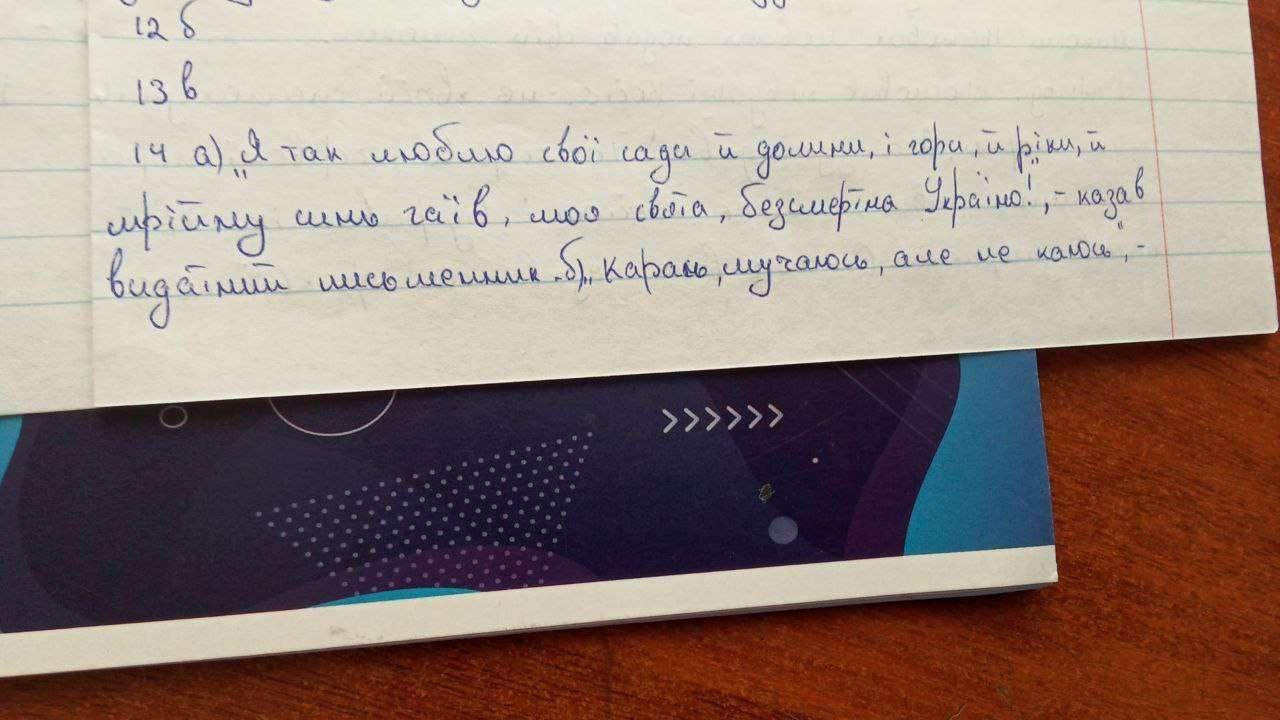 12 б
13 в
14 а) „Я так люблю свої сади й долини, і гори, й ріки, й
мрійну синь гаїв, моя свята, безсмертна Україно!", - казав
видатний письменник. б) „Караюсь, мучаюсь, але не каюсь", -